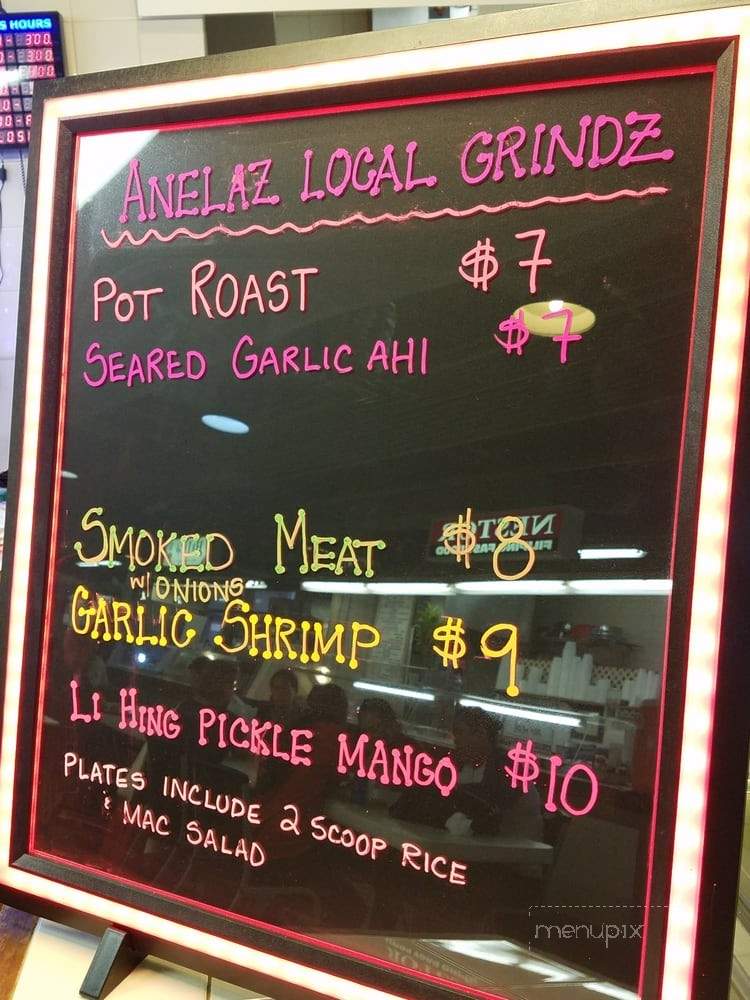 S HOURS
ANELAZ LOCAL GRINDZ
POT ROAST $7
SEARED GARLIC AHI $7
SMOKED MEAT $8
W/ONIONS
GARLIC SHRIMP $9
LI HING PICKLE MANGO $10
PLATES INCLUDE 2 SCOOP RICE
& MAC SALAD
menupix